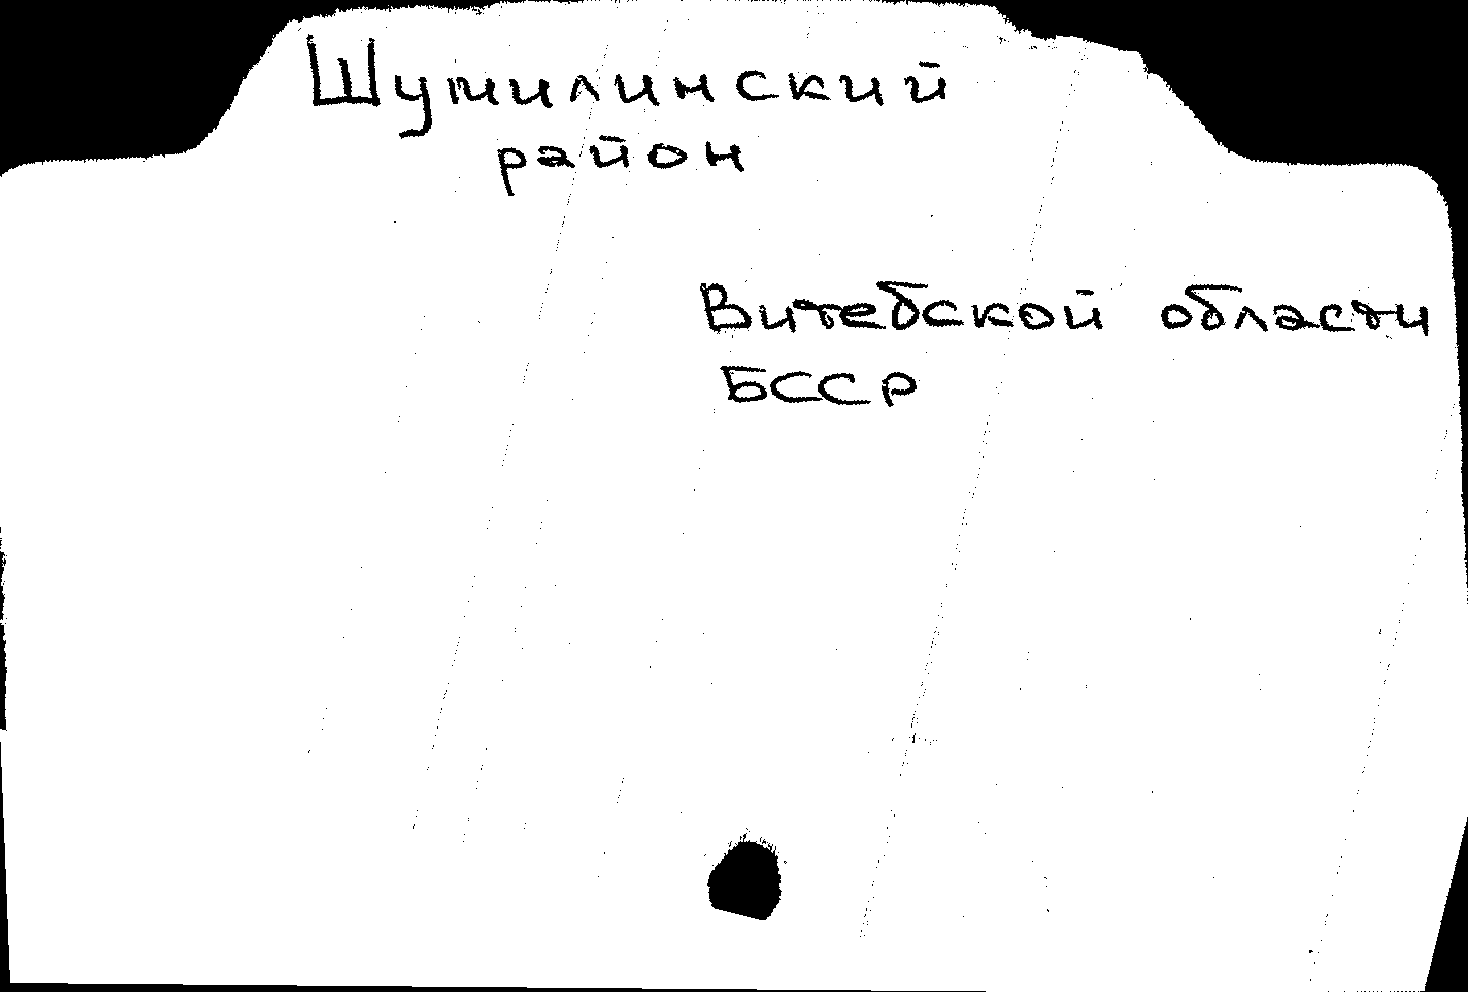 Шумилинский
район
Витебской области
БССР